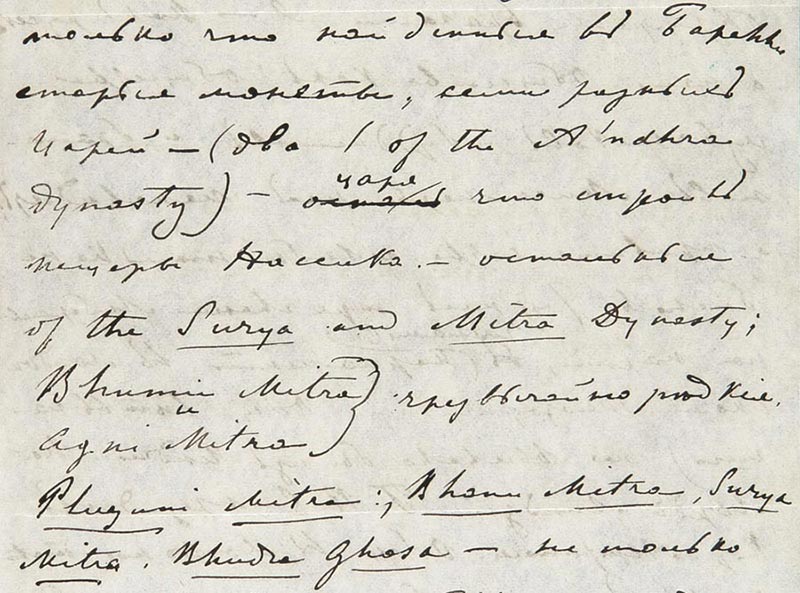 только что найденные въ Барекки
старые монеты, семи разныхъ
Царей – (два / of the A'ndhra
dynasty) – царя что строилъ
пещеры Нассика. – остальные
of the Surya and Mitra Dynasty;
Bhumi Mitra} чрезвычайно редкія.
и
Agni Mitra
Phaguni Mitra:, Bhanu Mitra, Surya
Mitra. Bhudra Ghosa – не только